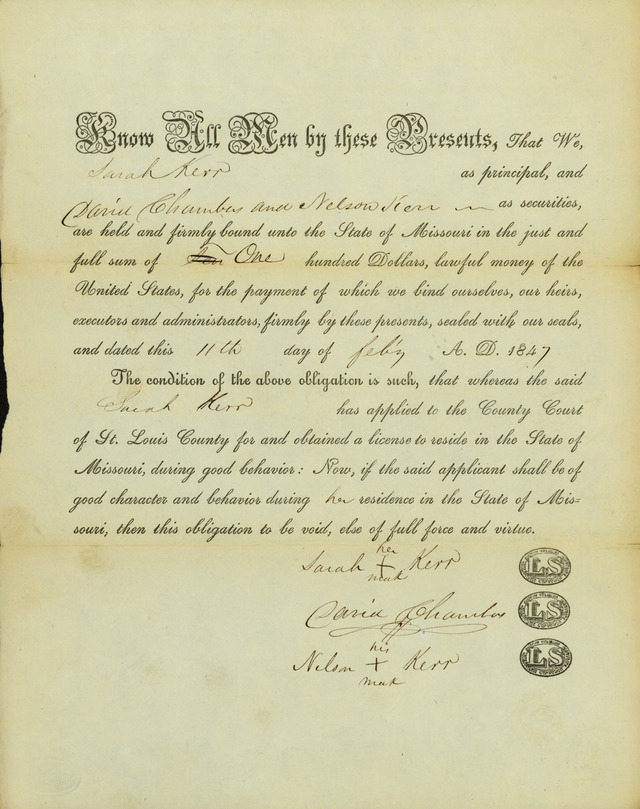 Know All Men by these Presents, That We,
Sarah Kerr as principal, and
David Chambers and Nelson Kerr as securities,
are held and firmly bound unto the State of Missouri in the just and
full sum of One hundred Dollars, lawful money of the
United States, for the payment of which we bind ourselves, our heirs,
executors and administrators, firmly by these presents, sealed with our seals,
and dated this 11th day of feb'y A. D. 1847
The condition of the above obligation is such, that whereas the said
Sarah Kerr has applied to the County Court
of St. Louis County for and obtained a license to reside in the State of
Missouri, during good behavior: Now, if the said applicant shall be of
good character and behavior during her residence in the State of Mis=
souri, then this obligation to be void, else of full force and virtue.
her
Sarah + Kerr LS
mark
David Chambers LS
his
Nelson + Kerr LS
mark